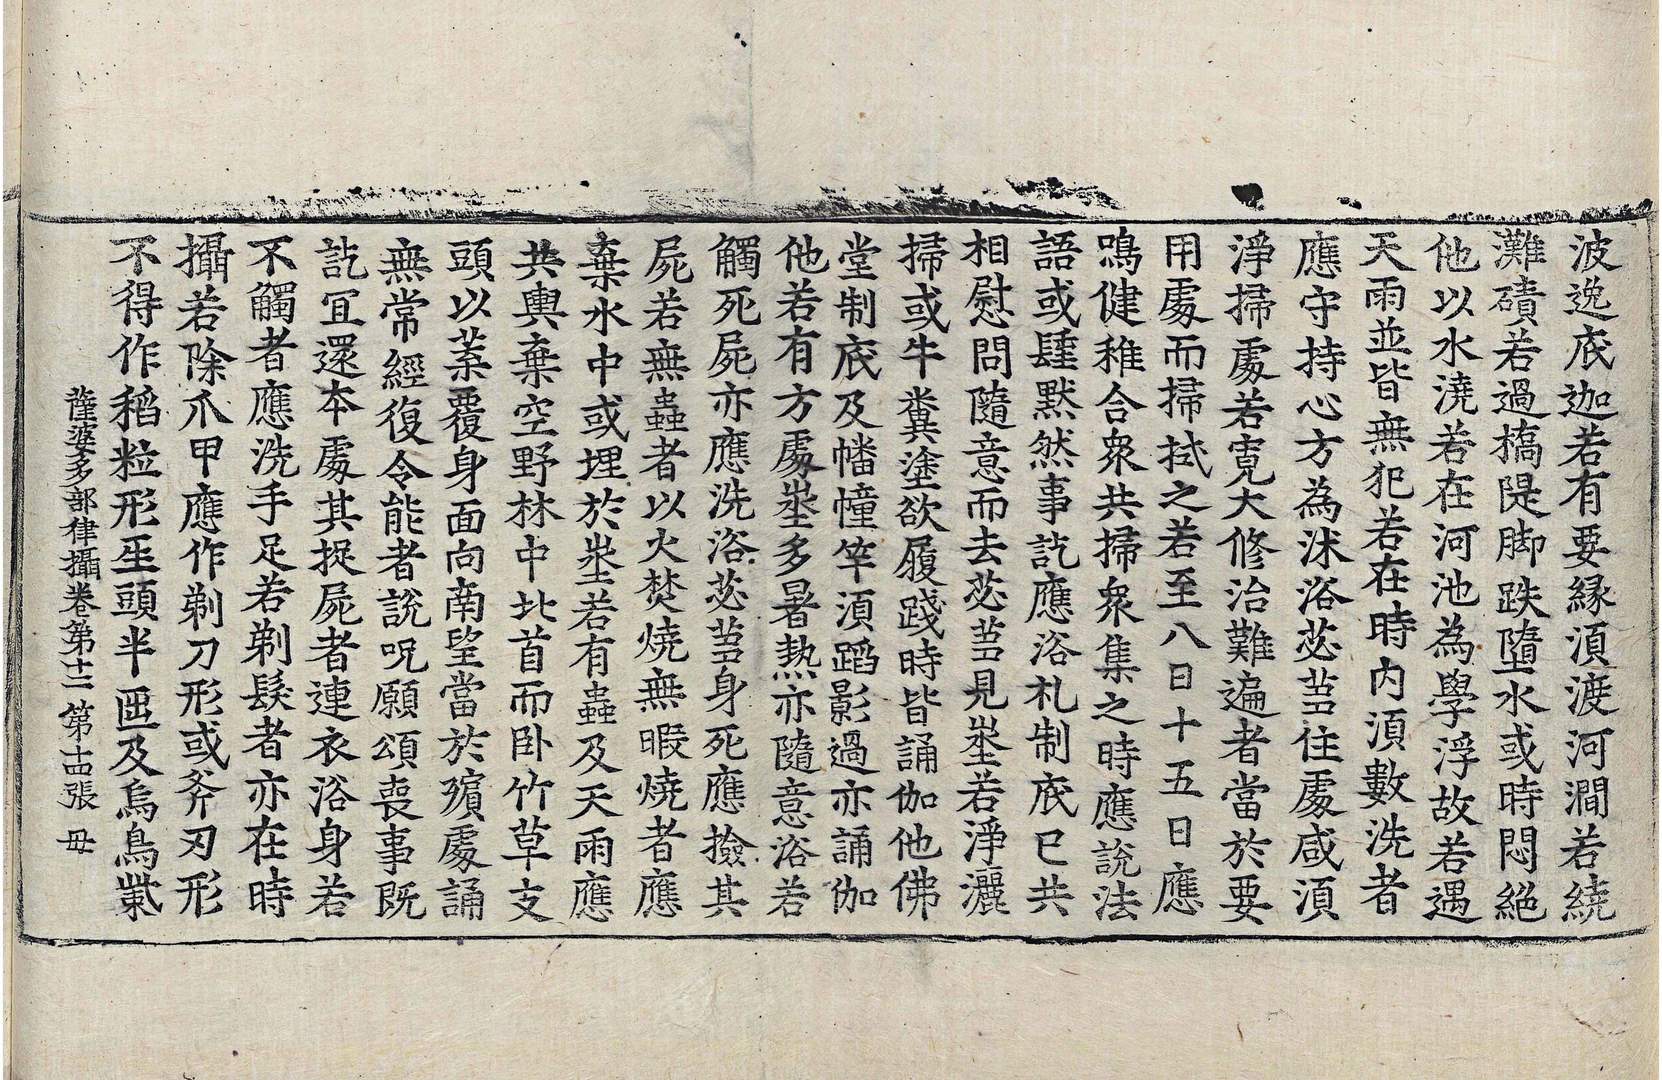 波逸底迦若有要緣湏渡河澗若繞
灘磧若過橋隄脚跌墮水或時悶絕
他以水澆若在河池為學浮故若遇
天雨並皆無犯若在時內湏數洗者
應守持心方為沐浴苾芻住處咸湏
淨掃處若寬大修治難遍者當於要
用處而掃拭之若至八日十五日應
鳴健稚合衆共掃衆集之時應說法
語或𨽻默然事訖應浴札制底已共
相慰問隨意而去苾芻見塟若淨灑
掃或牛糞塗欲履踐時皆誦伽他佛
堂制底及幡幢竿湏蹈影過亦誦伽
他若有方處塟多暑熱亦隨意浴若
觸死屍亦應洗浴苾芻身死應撿其
屍若無蟲者以火焚燒無暇燒者應
棄水中或埋於塟若有蟲及天雨應
共輿棄空野林中北首而卧竹草支
頭以葉覆身面向南望當於殯處誦
無常經復令能者說呪願頌喪事既
訖冝還本處其捉屍者連衣浴身若
不觸者應洗手足若剃髮者亦在時
攝若除爪甲應作剃刀形或斧刃形
不得作稻粒形𤯔頭半𠥽及烏鳥觜
薩婆多部律攝卷第十二 第十四張 毋